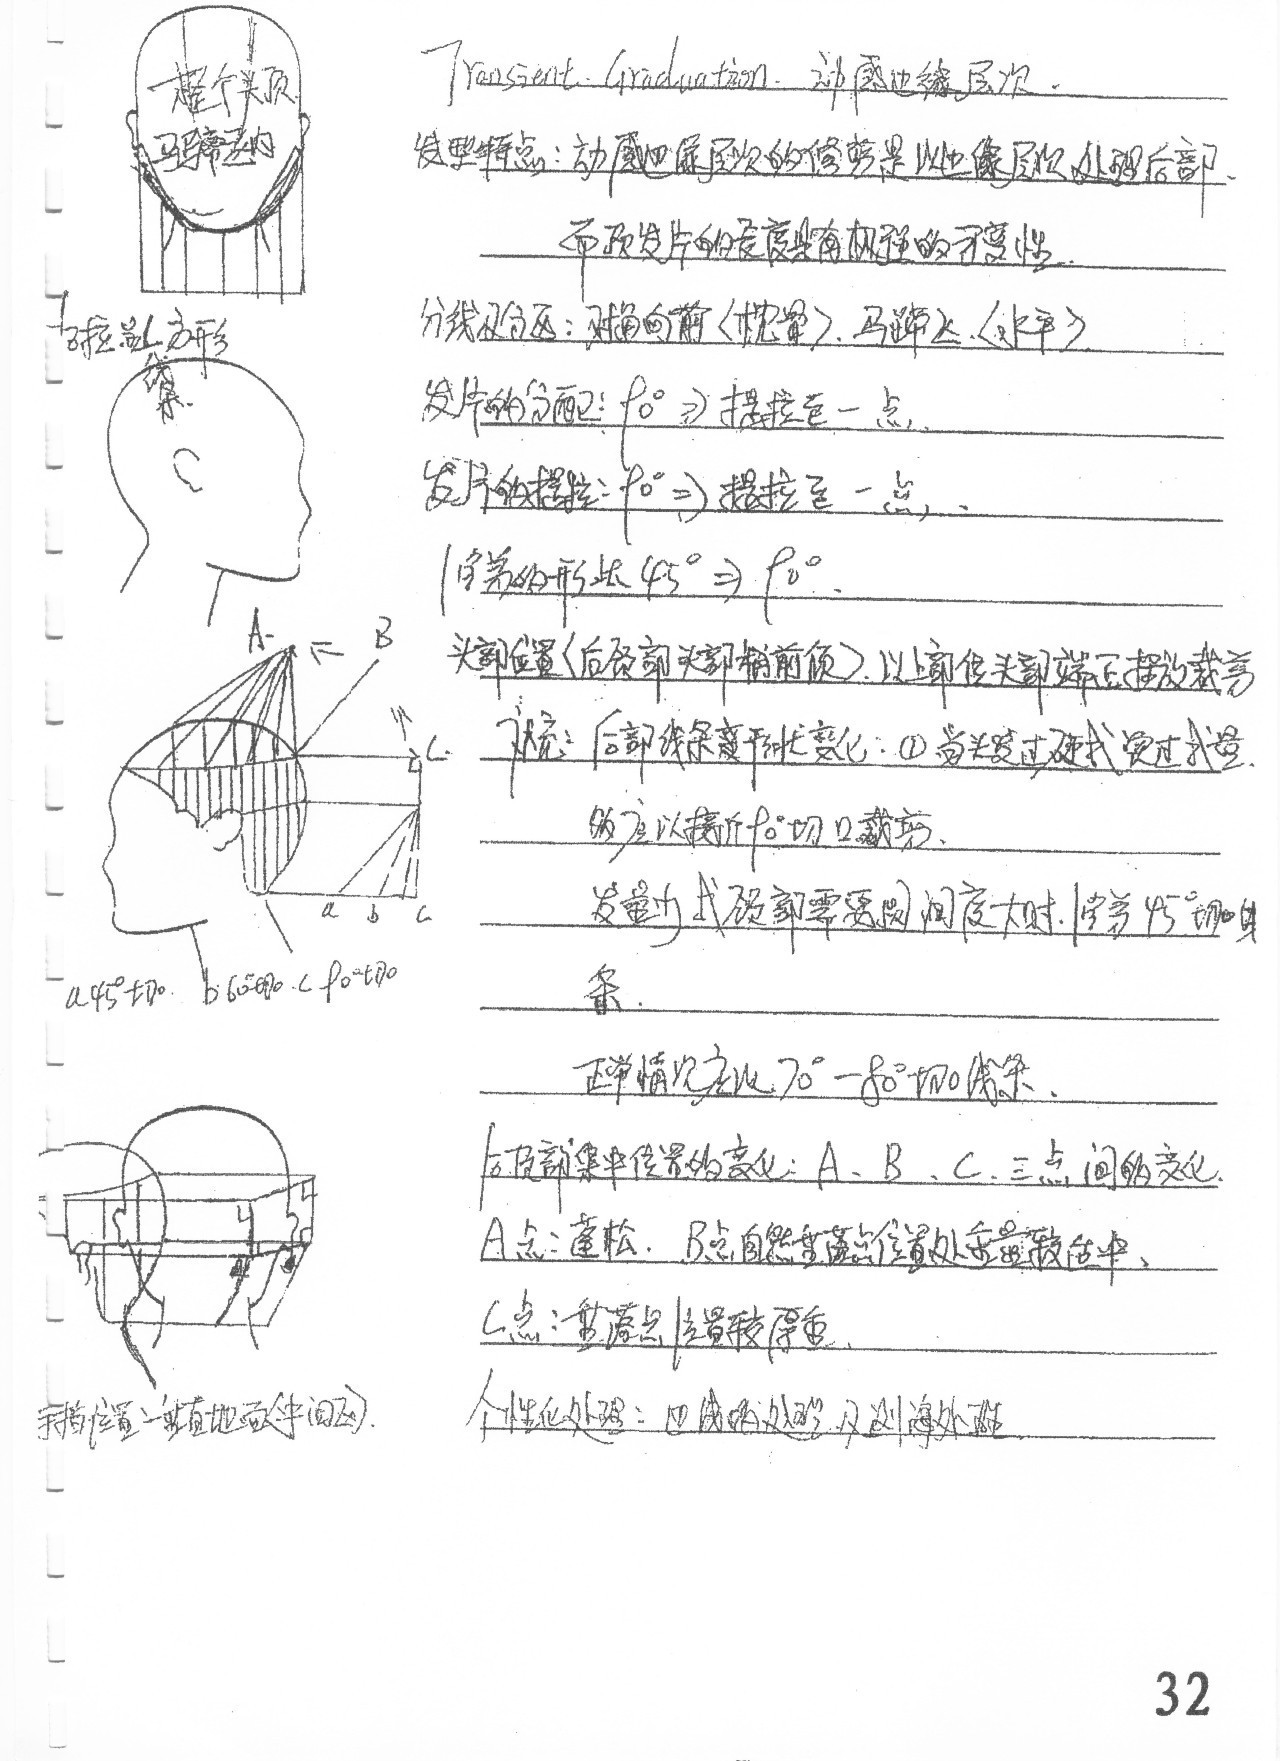 Transient Graduation. 动感边缘层次.
发型特点：动感边缘层次的修剪是以边缘层次处理后部.
而顶发片的长度具有极强的可变性.
分线及分区：对角向前〈枕骨〉、马蹄区〈水平〉
发片的分配：90° ⇒ 提拉至一点.
发片的提拉：90° ⇒ 提拉至一点.
的形状 45° ⇒ 90°.
头部位置〈后颈部头部稍前倾〉. 以上部位头部端正摆放裁剪
后部线条变形状变化：① 当头发过硬或发过或量
的应以接近90°切口裁剪.
发量少或颈部需要 大时. 45°切口线
条.
正常情况应以70°—80°切口线条.
后顶部集中位置的变化：A、B、C三点间的变化.
A点：蓬松. B点自然垂落点位置处重量较集中.
C点：垂落点位置较厚重.
个性化处理： 线的处理及刘海处理
整个头顶
马蹄区内
方形
线
条.
A
B
C
a b c
a 45°切口. b 60°切口. c 90°切口
手指位置：垂直地面(中间区).
32